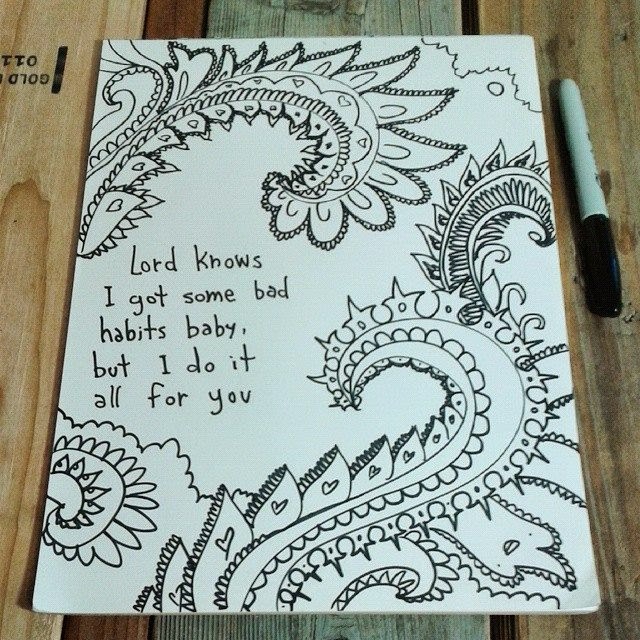 Lord knows
I got some bad
habits baby,
but I do it
all for you
GOLD
0110